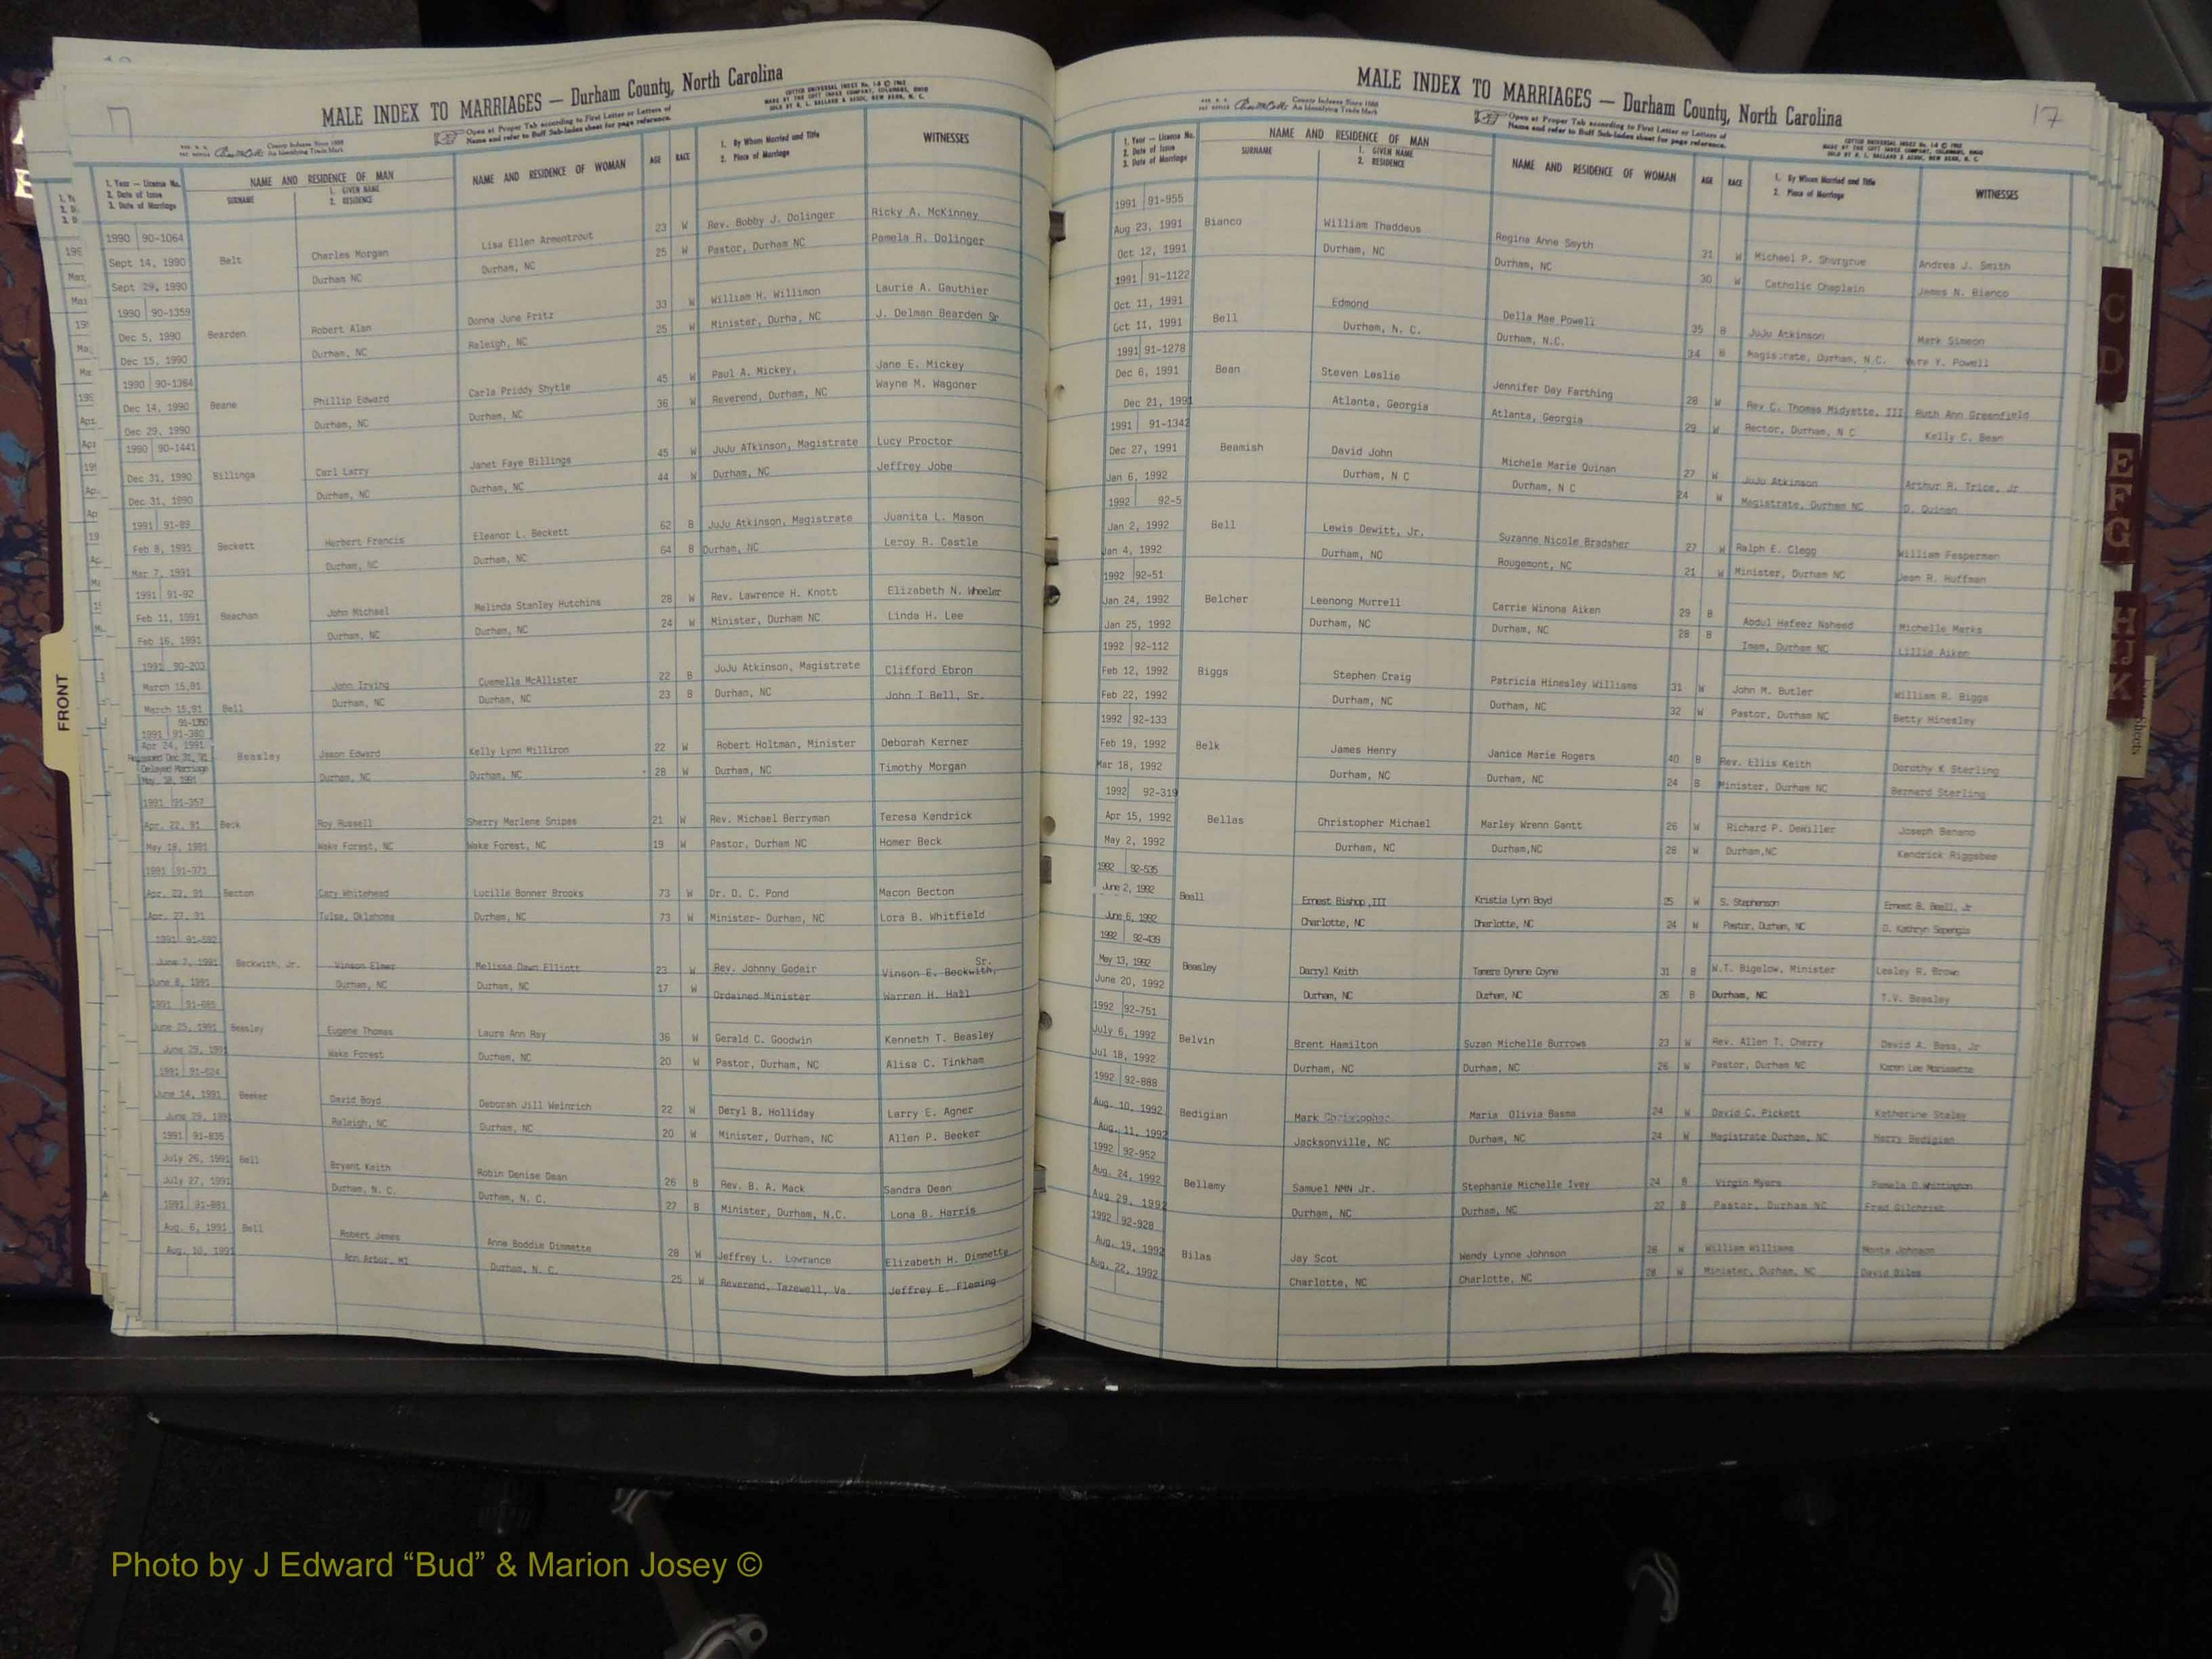 MALE INDEX TO MARRIAGES — Durham County, North Carolina
Open at Proper Tab according to First Letter or Letters of
Name and refer to Buff Sub-Index sheet for page reference.
County Indexes Since 1888
An Identifying Trade Mark
1. Year — License No.
2. Date of Issue
3. Date of Marriage
NAME AND RESIDENCE OF MAN
SURNAME
1. GIVEN NAME
2. RESIDENCE
NAME AND RESIDENCE OF WOMAN
AGE RACE
1. By Whom Married and Title
2. Place of Marriage
WITNESSES
1990 90-1064 23 W Rev. Bobby J. Dolinger Ricky A. McKinney
Sept 14, 1990 Belt Charles Morgan Lisa Ellen Armentrout 25 W Pastor, Durham NC Pamela R. Dolinger
Sept 29, 1990 Durham NC Durham, NC
1990 90-1359 33 W William H. Willimon Laurie A. Gauthier
Dec 5, 1990 Bearden Robert Alan Donna June Fritz 25 W Minister, Durha, NC J. Delman Bearden Sr
Dec 15, 1990 Durham, NC Raleigh, NC
1990 90-1384 45 W Paul A. Mickey, Jane E. Mickey
Dec 14, 1990 Beane Phillip Edward Carla Priddy Shytle 36 W Reverend, Durham, NC Wayne M. Wagoner
Dec 29, 1990 Durham, NC Durham, NC
1990 90-1441 45 W JuJu ATkinson, Magistrate Lucy Proctor
Dec 31, 1990 Billings Carl Larry Janet Faye Billings 44 W Durham, NC Jeffrey Jobe
Dec 31, 1990 Durham, NC Durham, NC
1991 91-89 62 B JuJu Atkinson, Magistrate Juanita L. Mason
Feb 8, 1991 Beckett Herbert Francis Eleanor L. Beckett 64 B Durham, NC Leroy R. Castle
Mar 7, 1991 Durham, NC Durham, NC
1991 91-92 28 W Rev. Lawrence H. Knott Elizabeth N. Wheeler
Feb 11, 1991 Beachan John Michael Melinda Stanley Hutchins 24 W Minister, Durham NC Linda H. Lee
Feb 16, 1991 Durham, NC Durham, NC
1991 90-203 22 B JuJu Atkinson, Magistrate Clifford Ebron
March 15,91 John Irving Cuemella McAllister 23 B Durham, NC John I Bell, Sr.
March 15,91 Bell Durham, NC Durham, NC
91-1350
1991 91-380
Apr 24, 1991 Beasley Jason Edward Kelly Lynn Milliron 22 W Robert Holtman, Minister Deborah Kerner
Reissued Dec 31, 91
Delayed Marriage Durham, NC Durham, NC 28 W Durham, NC Timothy Morgan
May 18, 1991
1991 91-357
Apr. 22, 91 Beck Roy Russell Sherry Marlene Snipes 21 W Rev. Michael Berryman Teresa Kendrick
May 18, 1991 Wake Forest, NC Wake Forest, NC 19 W Pastor, Durham NC Homer Beck
1991 91-371
Apr. 23, 91 Becton Cary Whitehead Lucille Bonner Brooks 73 W Dr. D. C. Pond Macon Becton
Apr. 27, 91 Tulsa, Oklahoma Durham, NC 73 W Minister- Durham, NC Lora B. Whitfield
1991 91-592
June 7, 1991 Beckwith, Jr. Vinson Elmer Melissa Dawn Elliott 23 W Rev. Johnny Godair Vinson E. Beckwith, Sr.
June 8, 1991 Durham, NC Durham, NC 17 W Ordained Minister Warren H. Hall
1991 91-685
June 25, 1991 Beasley Eugene Thomas Laura Ann Ray 36 W Gerald C. Goodwin Kenneth T. Beasley
June 29, 1991 Wake Forest Durham, NC 20 W Pastor, Durham, NC Alisa C. Tinkham
1991 91-624
June 14, 1991 Beeker David Boyd Deborah Jill Weinrich 22 W Deryl B. Holliday Larry E. Agner
June 29, 199 Raleigh, NC Durham, NC 20 W Minister, Durham, NC Allen P. Beeker
1991 91-835
July 26, 1991 Bell Bryant Keith Robin Denise Dean 26 B Rev. B. A. Mack Sandra Dean
July 27, 1991 Durham, N. C. Durham, N. C. 27 B Minister, Durham, N.C. Lona B. Harris
1991 91-881
Aug. 6, 1991 Bell Robert James Anne Boddie Dimmette 28 W Jeffrey L. Lowrance Elizabeth H. Dimmette
Aug. 10, 1991 Ann Arbor, MI Durham, N. C. 25 W Reverend, Tazewell, Va. Jeffrey E. Fleming
FRONT
MALE INDEX TO MARRIAGES — Durham County, North Carolina
17
Open at Proper Tab according to First Letter or Letters of
Name and refer to Buff Sub-Index sheet for page reference.
County Indexes Since 1888
An Identifying Trade Mark
1. Year — License No.
2. Date of Issue
3. Date of Marriage
NAME AND RESIDENCE OF MAN
SURNAME
1. GIVEN NAME
2. RESIDENCE
NAME AND RESIDENCE OF WOMAN
AGE RACE
1. By Whom Married and Title
2. Place of Marriage
WITNESSES
1991 91-955
Aug 23, 1991 Bianco William Thaddeus Regina Anne Smyth 31 W Michael P. Shurgrue Andrea J. Smith
Oct 12, 1991 Durham, NC Durham, NC 30 W Catholic Chaplain James N. Bianco
1991 91-1122
Oct 11, 1991 Bell Edmond Della Mae Powell 35 B JuJu Atkinson Mark Simeon
Oct 11, 1991 Durham, N. C. Durham, N.C. 34 B Magistrate, Durham, N.C. Y. Powell
1991 91-1278
Dec 6, 1991 Bean Steven Leslie Jennifer Day Farthing 28 W Rev C. Thomas Midyette, III Ruth Ann Greenfield
Dec 21, 1991 Atlanta, Georgia Atlanta, Georgia 29 W Rector, Durham, N C Kelly C. Bean
1991 91-1342
Dec 27, 1991 Beamish David John Michele Marie Quinan 27 W JuJu Atkinson Arthur R. Trice, Jr
Jan 6, 1992 Durham, N C Durham, N C 24 W Magistrate, Durham NC D. Quinan
1992 92-5
Jan 2, 1992 Bell Lewis Dewitt, Jr. Suzanne Nicole Bradsher 27 W Ralph E. Clegg William Fesperman
Jan 4, 1992 Durham, NC Rougemont, NC 21 W Minister, Durham NC Jean R. Huffman
1992 92-51
Jan 24, 1992 Belcher Leenong Murrell Carrie Winona Aiken 29 B Abdul Hafeez Naheed Michelle Marks
Jan 25, 1992 Durham, NC Durham, NC 28 B Imam, Durham NC Lillie Aiken
1992 92-112
Feb 12, 1992 Biggs Stephen Craig Patricia Hinesley Williams 31 W John M. Butler William R. Biggs
Feb 22, 1992 Durham, NC Durham, NC 32 W Pastor, Durham NC Betty Hinesley
1992 92-133
Feb 19, 1992 Belk James Henry Janice Marie Rogers 40 B Rev. Ellis Keith Dorothy K Sterling
Mar 18, 1992 Durham, NC Durham, NC 24 B Minister, Durham NC Bernard Sterling
1992 92-319
Apr 15, 1992 Bellas Christopher Michael Marley Wrenn Gantt 26 W Richard P. DeWiller Joseph Banano
May 2, 1992 Durham, NC Durham,NC 28 W Durham,NC Kendrick Riggsbee
1992 92-535
June 2, 1992 Beall Ernest Bishop ,III Kristia Lynn Boyd 25 W S. Stephenson Ernest B. Beall, Jr
June 6, 1992 Charlotte, NC Charlotte, NC 24 W Pastor, Durham, NC D. Kathryn
1992 92-439
May 13, 1992 Beasley Darryl Keith Tamara Dynene Coyne 31 B W.T. Bigelow, Minister Lesley R. Brown
June 20, 1992 Durham, NC Durham, NC 26 B Durham, NC T.V. Beasley
1992 92-751
July 6, 1992 Belvin Brent Hamilton Suzan Michelle Burrows 23 W Rev. Allen T. Cherry David A. Bass, Jr
Jul 18, 1992 Durham, NC Durham, NC 26 W Pastor, Durham NC Karen Lee Morissette
1992 92-888
Aug. 10, 1992 Bedigian Mark Christopher Maria Olivia Basma 24 W David C. Pickett Katherine Staley
Aug. 11, 1992 Jacksonville, NC Durham, NC 24 W Magistrate Durham, NC Harry Bedigian
1992 92-952
Aug. 24, 1992 Bellamy Samuel NMN Jr. Stephanie Michelle Ivey 24 B Virgin Myers Pamela D.Whittington
Aug 29, 1992 Durham, NC Durham, NC 22 B Pastor, Durham NC Fred Gilchrist
1992 92-928
Aug. 19, 1992 Bilas Jay Scot Wendy Lynne Johnson 28 W William Williams Monta Johnson
Aug. 22, 1992 Charlotte, NC Charlotte, NC 28 W Minister, Durham, NC David Bilas
C
D
E
F
G
H
IJ
K
Photo by J Edward “Bud” & Marion Josey ©